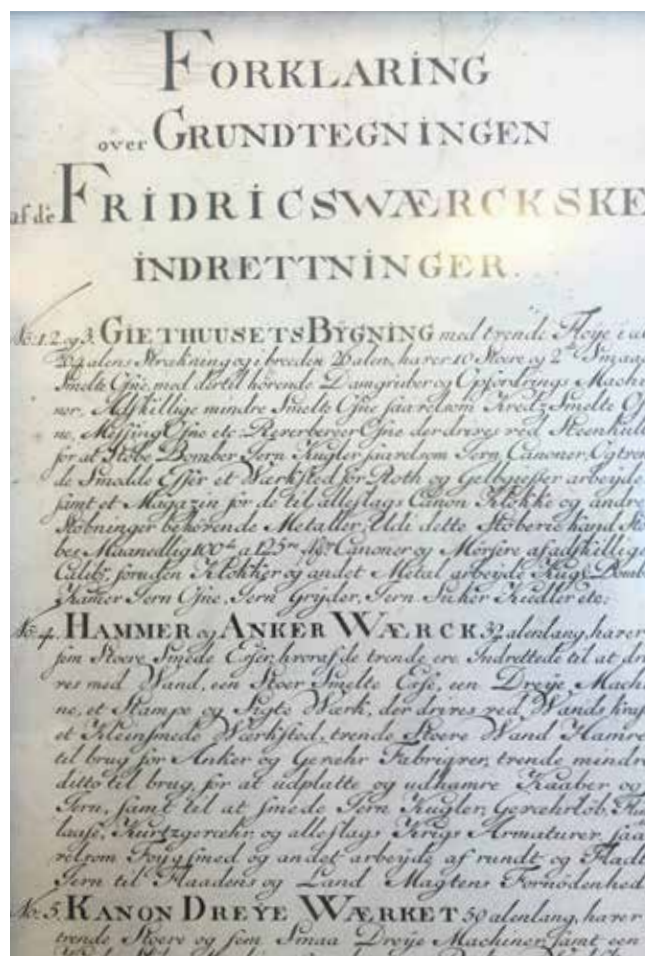 FORKLARING
over GRUNDTEGNINGEN
af de FRIDRICSWÆRCKSKE
INDRETTNINGER.
No. 1.2 og 3. GIETHUUSETS BYGNING med trende Fløye i
204 alens Strækning og i breeden 26 alen, harer 10 Stoere og 2 Smaa
Smelte Ofne, med dertil hörende Damgruber og Opfordrings Machi
ner, Adskillige mindre Smelte Ofne saavelsom Kretz Smelte Of
ne, Messing Ofne etc. Reverbereer Ofne der drives ved Steenkull
for at Stöbe Bomber Jern Kugler saavelsom Jern Canoner, Og tren
de Smodde Esser et Værksted for Roth og Gelbgiesser arbeyde
samt et Magazin for de til alleslags Canon Klokke og andre
Stöbninger behörende Metaller, Udi dette Stöberie kand Stö
bes Maanedlig 100 a 125 Canoner og Mörsere af adskillige
Calib: foruden Klokker og andet Metal arbeyde Kugl: Bomb
Kamer Jern Ofne, Jern Gryder, Jern Suker Kiedler etc:
No. 4. HAMMER og ANKER WÆRCK 32 alen lang, harer
fem Stoere Smede Esser, hvoraf de trende ere Indrettede til at dri
ves med Vand, een Stoer Smelte Esse, een Dreye Machi
ne, et Stampe og Sigte Værk, der drives ved Vands kraf
et Kleinsmede Værksted, trende Stoere Vand Hamre
til brug for Anker og Geværhr Fabriqver, trende mindre
ditto til brug, for at udplatte og udhamre Kaaber og
Jern, samt til at smede Jern Kugler, Geværhrlöb,
laase, Kurtzgeværhr, og alleslags Krigs Armaturer, saa
velsom Föygsmed og andet arbeyde af rundt og Fladt
Jern til Flaadens og Land Magtens Fornödenhed
No. 5. KANON DREYE WÆRKET 50 alen lang, harer
trende Stoere og fem Smaa Dreye Machiner, samt een